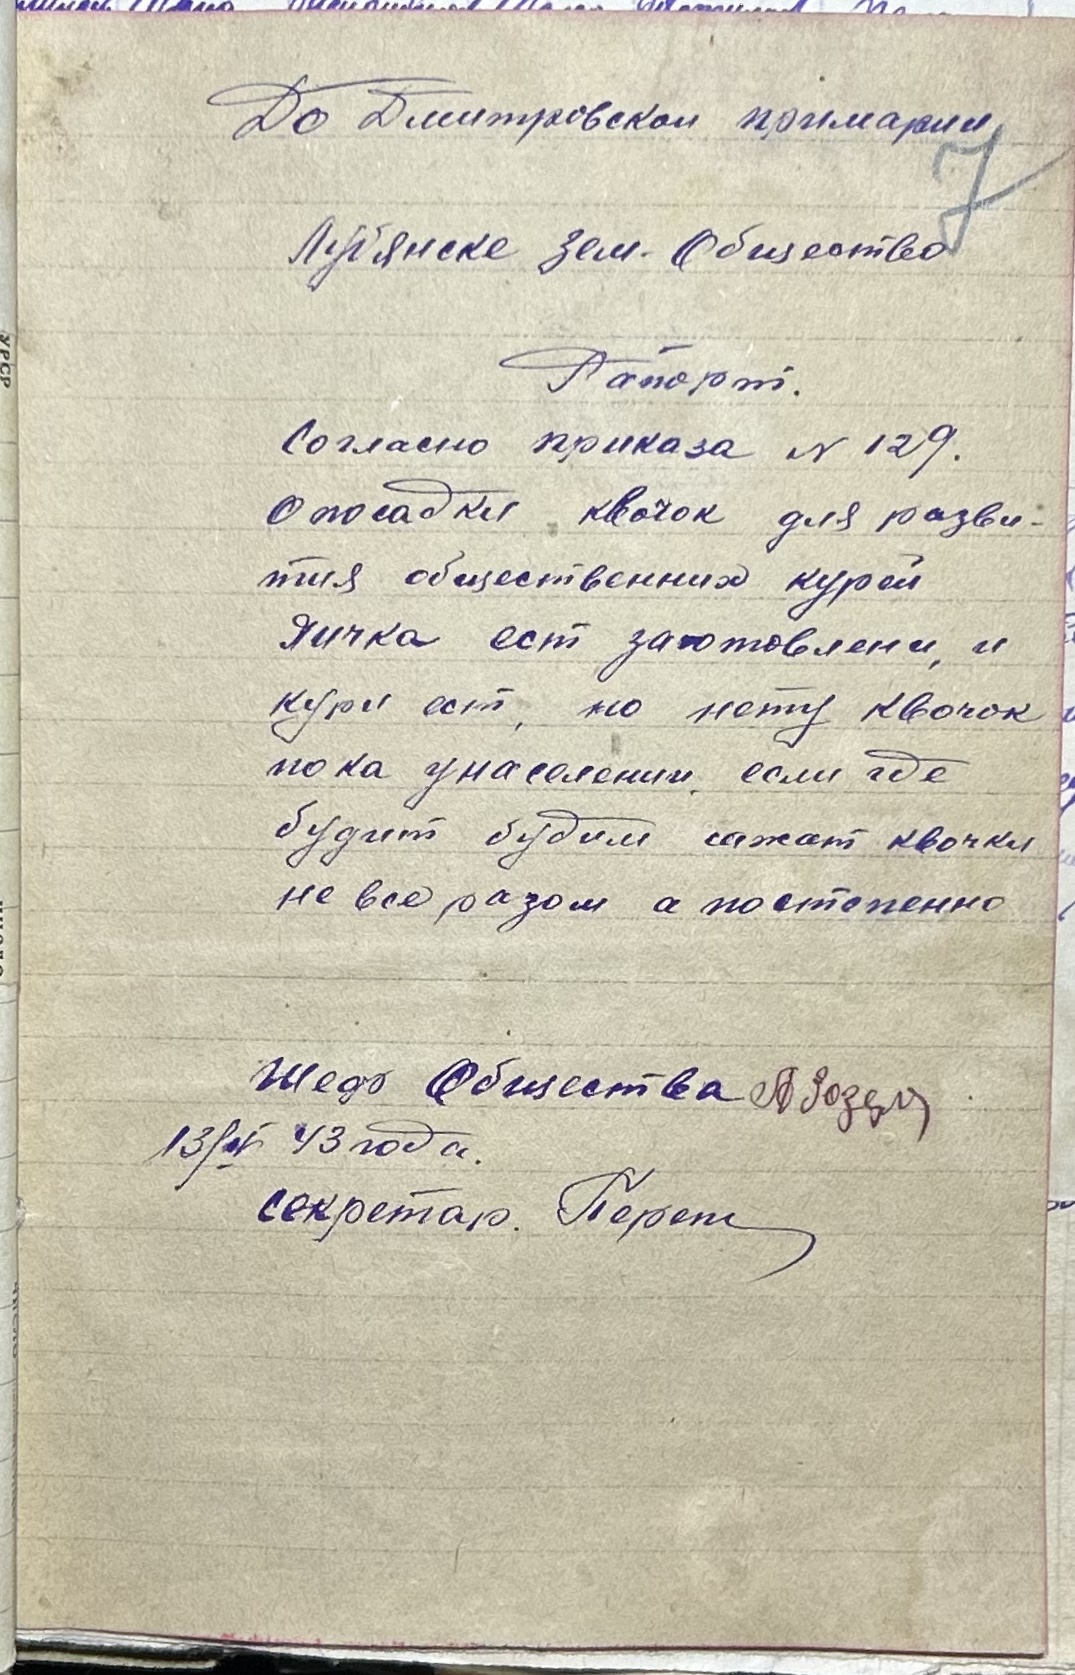 До Дмитровскои примарии
7
Лубянске зем. Общество
Рапорт.
Согласно приказа N 129.
О посадки квочок для разви-
тия общественних курей
Яичка ест заготовлени, и
кури ест, но нету квочок
пока у населении, если где
будит будим сажат квочки
не все разом а постепенно
Шеф Общества
13/ 43 года.
секретар.
УРСР